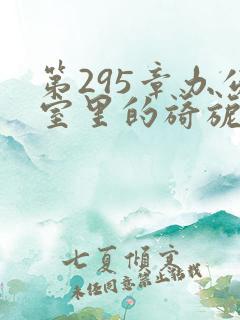 第295章办公
室里的旖旎
七夏倾寒
未经同意禁止转载